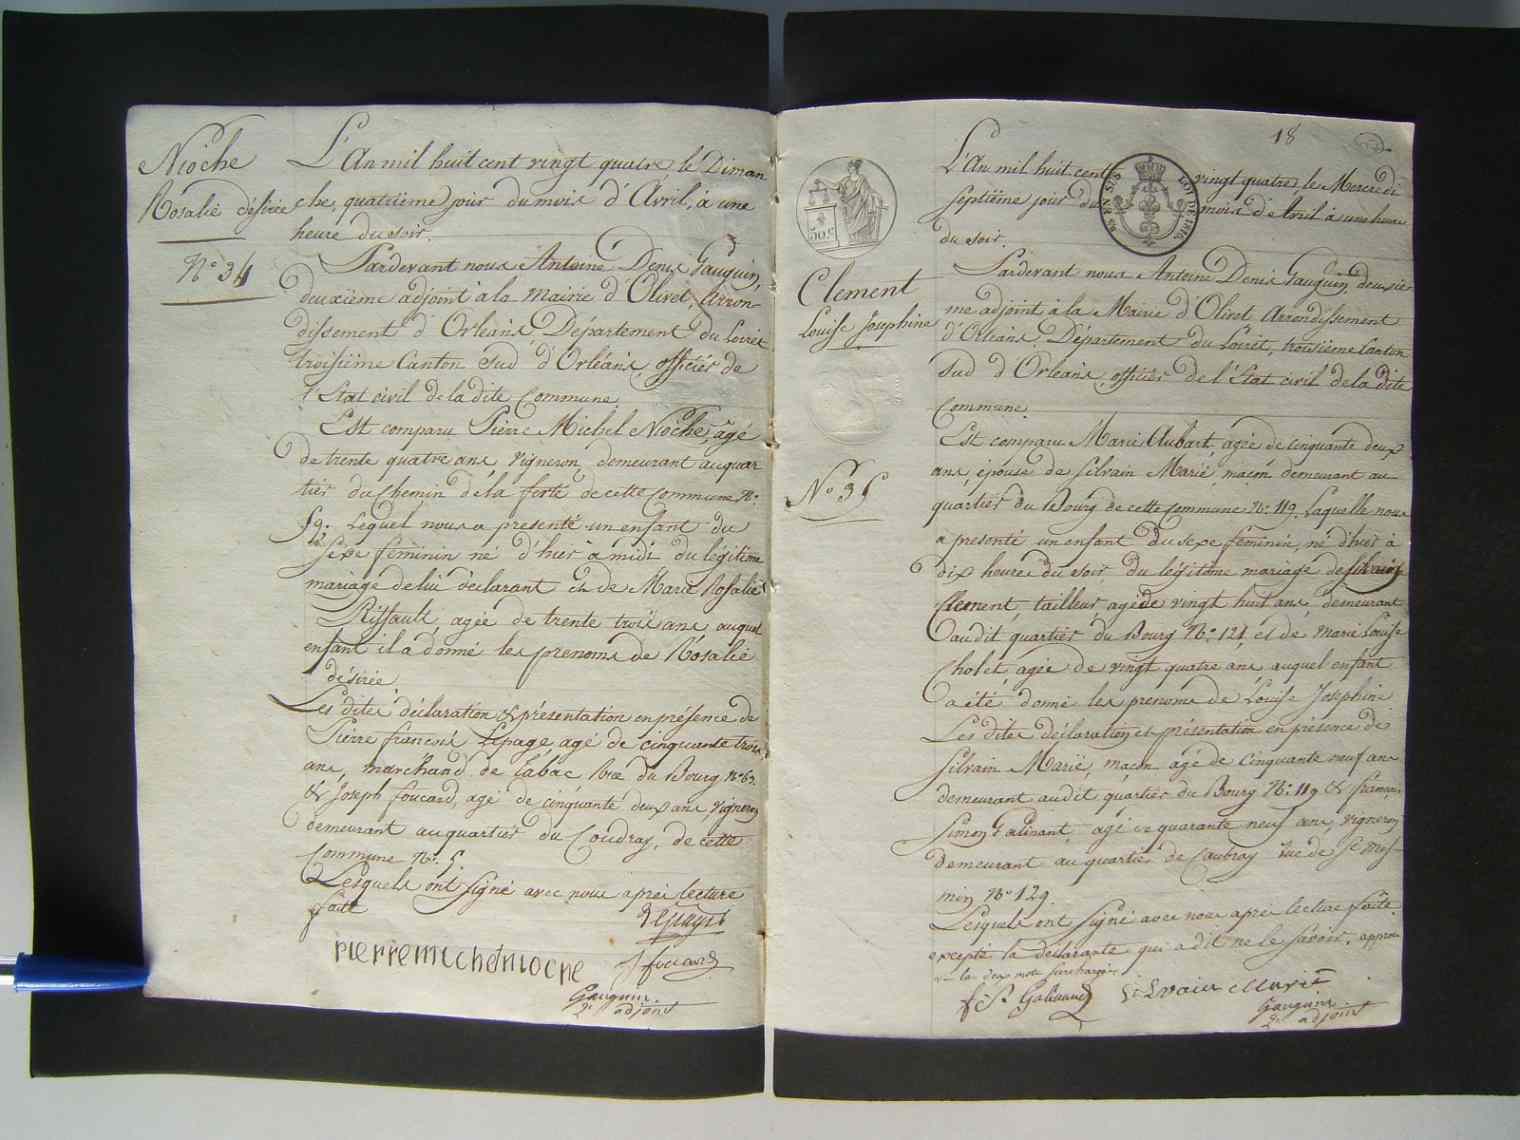 Nioche
Rosalie désirée
N° 34
L'An mil huit cent vingt quatre, le Diman
che, quatrième jour du mois d'Avril, à une
heure du soir.
Pardevant nous Antoine Denis Gauguin,
deuxième adjoint à la Mairie d'Olivet, Arron-
dissement d'Orléans, Département du Loiret
troisième Canton Sud d'Orléans, officier de
l'Etat civil de la dite Commune
Est comparu Pierre Michel Nioche, âgé
de trente quatre ans, vigneron, demeurant au quar
tier du Chemin de la ferté de cette Commune N°
59. Lequel nous a presenté un enfant du
Sexe féminin né d'hier à midi du légitime
mariage de lui déclarant et de Marie Rosalie
Riffault, agée de trente trois ans auquel
enfant il a donné les prenoms de Rosalie
désirée
Les dites déclaration & présentation en présence de
Pierre françois Lepage, agé de cinquante trois
ans, marchand de tabac rue du Bourg N° 67.
& Joseph foucard, agé de cinquante deux ans, vigneron
demeurant au quartier du Coudray, de cette
Commune N° 5.
Lesquels ont signé avec nous après lecture
faite
Lepage
pierre michel nioche
J foucard
Gauguin.
2e adjoint
18
L'An mil huit cent vingt quatre, le Mercredi
septième jour du mois d'Avril à une heure
du soir.
Clement
Louise Josephine
N° 35
Pardevant nous Antoine Denis Gauguin deuxiè
me adjoint à la Mairie d'Olivet Arrondissement
d'Orléans, Département du Loiret, troisième Canton
Sud d'Orléans, officier de l'Etat civil de la dite
Commune.
Est comparu Marie Aubart, agée de cinquante deux
ans, épouse de Silvain Marié, maçon demeurant au
quartier du Bourg de cette commune N° 119. Laquelle nous
a presenté un enfant du sexe féminin, né d'hier à
dix heures du soir du légitime mariage de Silvain
Clement, tailleur agé de vingt huit ans, demeurant
audit quartier du Bourg N° 121, et de Marie Louise
Cholet, agée de vingt quatre ans auquel enfant
a été donné les prenoms de Louise Josephine
Les dites déclaration et présentation en présence de
Silvain Marié, maçon agé de Cinquante neuf ans
demeurant audit quartier du Bourg N° 119 & françois
Simon Galinant, agé de quarante neuf ans, vigneron
demeurant au quartier de Caubray rue de St Mes-
min N° 129.
Lesquels ont signé avec nous après lecture faite
excepté la déclarante qui a dit ne le savoir. approu
vé les deux mots surchargés.
Silvain Marié
Gauguin.
2e adjoint